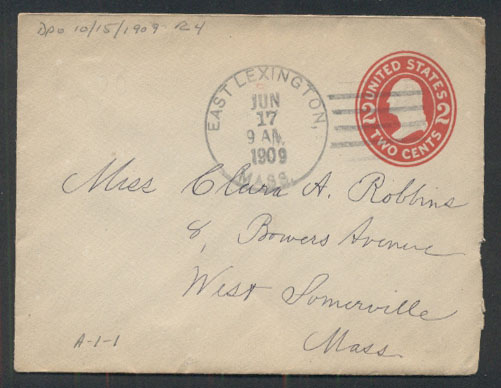 DPO 10/15/1909 R4
UNITED STATES
2 2
TWO CENTS
EAST LEXINGTON,
JUN
17
9 AM
1909
MASS.
Miss Clara A. Robbins
8, Bowers Avenue
West Somerville
Mass.
A-1-1